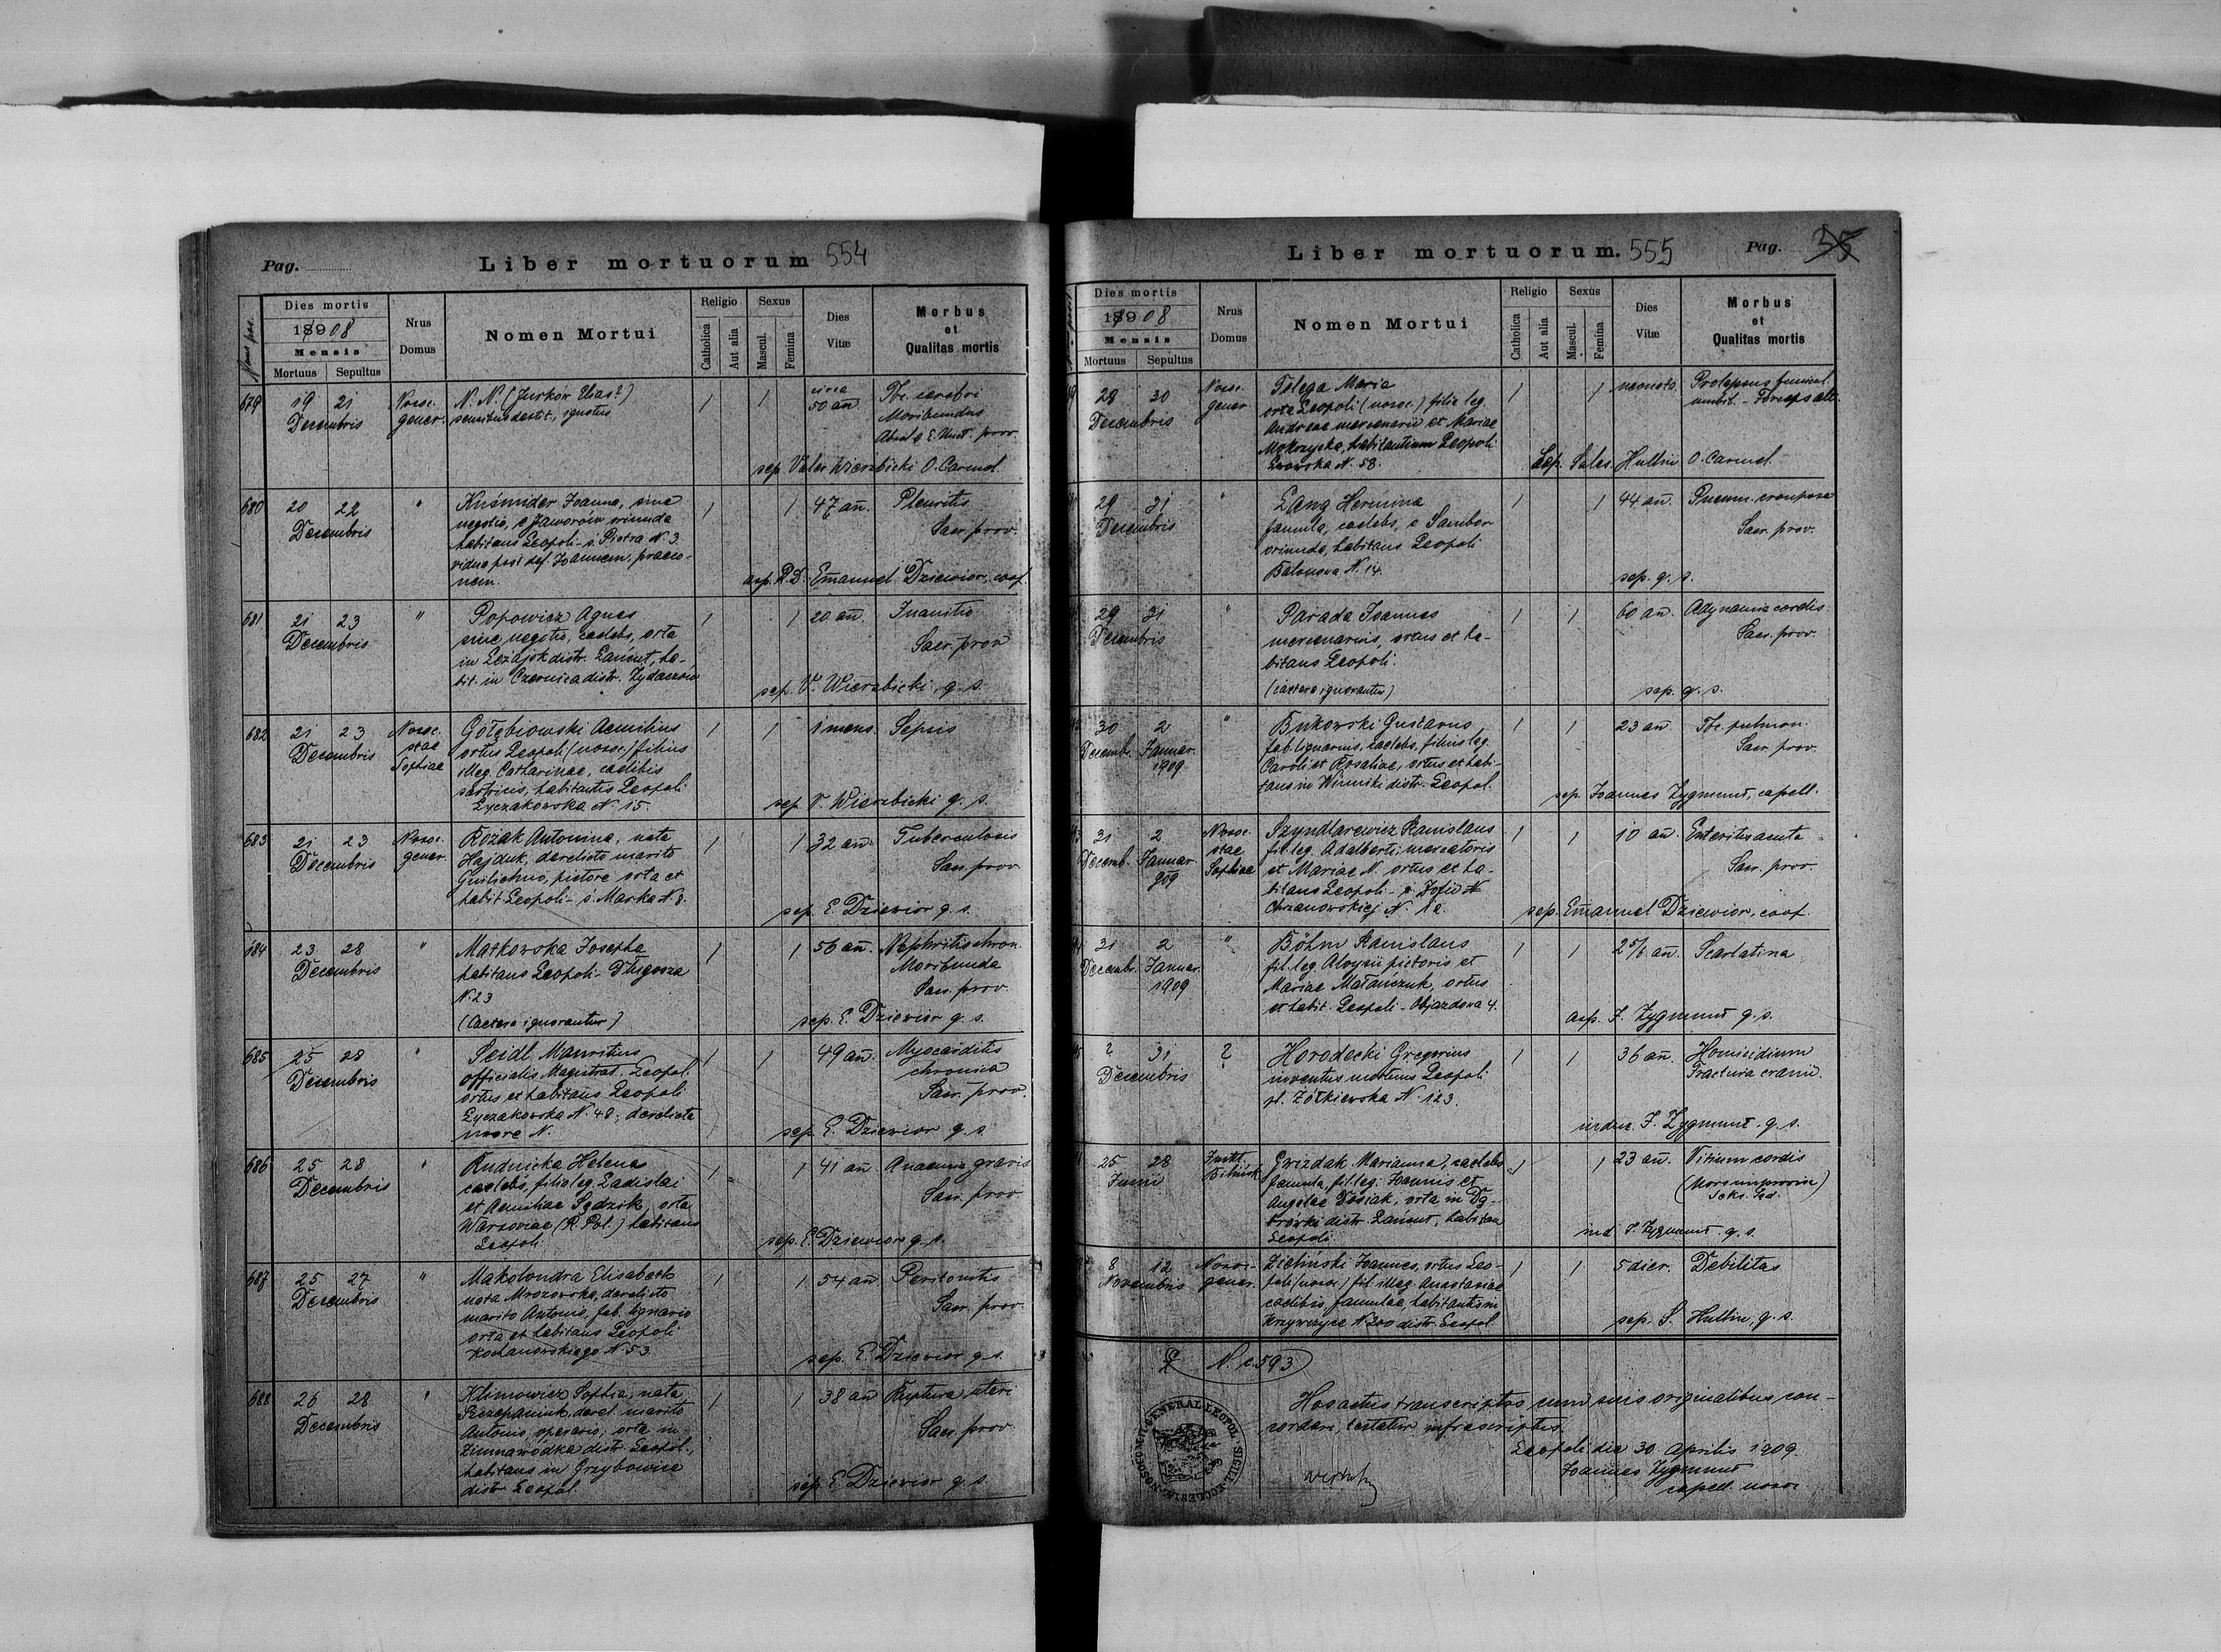 Pag.
Liber mortuorum 554
Dies mortis
1908
Mensis
Mortuus Sepultus
Nrus Domus
Nomen Mortui
Religio
Catholica
Aut alia
Sexus
Mascul.
Femina
Dies Vitæ
Morbus et Qualitas mortis
679 19 21 Decembris
Nosoc. gener.
N. N. (Jurków Elias?)
sensibus destit., ignotus
1 1
circa 50 an̄.
Tbc. cerebri
Moribundus
prov.
sep. Valer Wierzbicki O. Carmel.
680 20 22 Decembris
"
Kuśnider Joanna, sine
negotio, e Jaworów oriunda
habitans Leopoli - ś. Piotra N. 3.
vidua post def. Joannem, praeco-
nem.
1 1 47 an̄.
Pleuritis
Sacr. prov.
sep. P. D. Emanuel Dziewior, coop.
681 21 23 Decembris
"
Popowicz Agnes
sine negotio, caelebs, orta
in Leżajsk distr. Łańcut, ha-
bit. in Czernica distr. Żydaczów
1 1 20 an̄.
Inanitio
Sacr. prov.
sep. V. Wierzbicki, q. s.
682 21 23 Decembris
Nosoc. stae Sophiae
Gołębiowski Aemilius
ortus Leopoli (nosoc.) filius
illeg. Catharinae, caelibis
sartricis, habitantis Leopoli
Łyczakowska N. 15.
1 1 1 mens.
Sepsis
sep. V. Wierzbicki q. s.
683 21 23 Decembris
Nosoc. gener.
Rożak Antonina, nata
Hajduk, derelicto marito
Guilielmo, pictore orta et
habit. Leopoli - ś. Marka N. 8.
1 1 32 an̄.
Tuberculosis
Sacr. prov.
sep. E. Dziewior q. s.
684 23 28 Decembris
"
Matkowska Josepha
habitans Leopoli - Długosza
N. 23
(Caetera ignorantur)
1 1 56 an̄.
Nephritis chron.
Moribunda
Sacr. prov.
sep. E. Dziewior q. s.
685 25 28 Decembris
"
Seidl Mauritius
officialis Magistrat. Leopol.
ortus et habitans Leopoli
Łyczakowska N. 48, derelicta
uxore N.
1 1 49 an̄.
Myocarditis
chronica
Sacr. prov.
sep. E. Dziewior q. s.
686 25 28 Decembris
"
Rudnicka Helena
caelebs, filia leg. Ladislai
et Aemiliae Sędzik, orta
Warsoviae (R. Pol.) habitans
Leopoli
1 1 41 an̄.
Anaemia gravis
Sacr. prov.
sep. E. Dziewior q. s.
687 25 27 Decembris
"
Makolondra Elisabeth
nata Mrozowska, derelicto
marito Antonio, fab. lignario
orta et habitans Leopoli
Kochanowskiego N. 53.
1 1 54 an̄.
Peritonitis
Sacr. prov.
sep. E. Dziewior q. s.
688 26 28 Decembris
"
Klimowicz Sophia, nata
Szczepaniuk, derel. marito
Antonio, operario, orta in
Zimnawódka distr. Leopol.,
habitans in Grzybowice
distr. Leopol.
1 1 38 an̄
Ruptura uteri
Sacr. prov.
sep. E. Dziewior q. s.
Liber mortuorum. 555
Pag. 35
Dies mortis
1908
Mensis
Mortuus Sepultus
Nrus Domus
Nomen Mortui
Religio
Catholica
Aut alia
Sexus
Mascul.
Femina
Dies Vitæ
Morbus et Qualitas mortis
28 30 Decembris
Nosoc. gener.
Telega Maria
orta Leopoli (nosoc.) filia leg.
Andreae mercenarii et Mariae
Mokrzycka, habitantium Leopoli
N. 58.
1 1 neonata
Prolapsus funicul.
umbil. - Forceps alt.
Sep. Sales. Hultin O. Carmel.
29 31 Decembris
"
Lang Hermina
famula, caelebs, e Sambor
oriunda, habitans Leopoli
Balonowa N. 14.
1 1 44 an̄.
Pneum. crouposa
Sacr. prov.
sep. q. s.
29 31 Decembris
"
Parada Joannes
mercenarius, ortus et ha-
bitans Leopoli.
(caetera ignorantur)
1 1 60 an̄.
Adynamia cordis
Sacr. prov.
sep. q. s.
30 Decemb. 2 Januar. 1909
"
Bukowski Gustavus
fab. lignarius, caelebs, filius leg.
Caroli et Rosaliae, ortus et habi-
tans in Winniki distr. Leopol.
1 1 23 an̄
Tbc. pulmon.
Sacr. prov.
sep. Joannes Zygmunt, capell.
31 Decemb. 2 Januar. 909
Nosoc. stae Sophiae
Szyndlarewicz Stanislaus
fil. leg. Adalberti, mercatoris
et Mariae N. ortus et ha-
bitans Leopoli - Zofii
Chrzanowskiej N. 1a.
1 1 10 an̄.
Enteritis acuta
Sacr. prov.
sep. Emanuel Dziewior, coop.
31 Decembr. 2 Januar. 1909
"
Böhm Stanislaus
fil. leg. Aloysii pictoris et
Mariae Matańczuk, ortus
et habit. Leopoli - Objazdowa 4.
1 1 2 5/6 an̄.
Scarlatina
sep. J. Zygmunt q. s.
? 31 Decembris
?
Horodecki Gregorius
inventus mortuus Leopoli
pl. Żółkiewska N. 123.
1 1 36 an̄.
Homicidium
Fractura cranii.
J. Zygmunt. q. s.
25 28 Junii
Gwizdak Marianna, caelebs
famula, fil. leg. Joannis et
Angelae Dosiak, orta in Dą-
brówki distr. Łańcut, habitans
Leopoli
1 1 23 an̄.
Vitium cordis
(Mors improvisa)
J. Zygmunt q. s.
8 12 Novembris
Nosoc. gener.
Zieliński Joannes, ortus Leo-
poli (nosoc.) fil. illeg. Anastasiae
caelibis, famulae, habitantis in
Krzywczyce N. 200 distr. Leopol.
1 1 5 dier.
Debilitas
sep. S. Hultin, q. s.
N. c. 593
Hos actus transcriptos cum suis originalibus con-
cordare, testatur infrascriptus.
Leopoli die 30. Aprilis 1909.
Joannes Zygmunt
capell. nosoc.